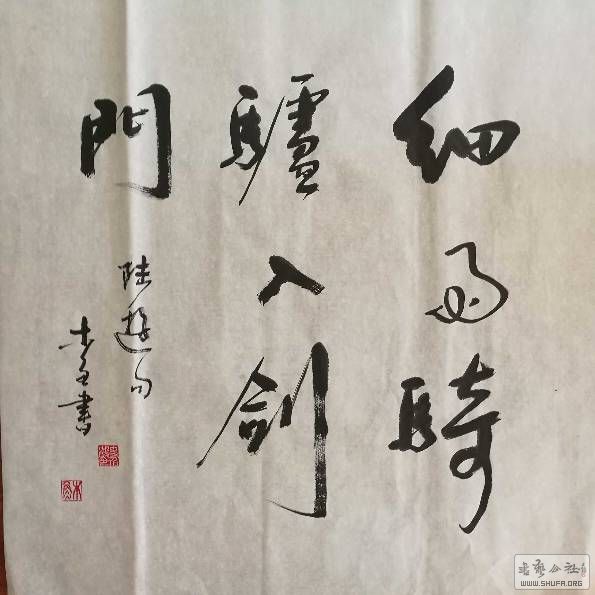 細雨騎
驢入剑
門
陸游句
書
书艺公社
WWW.SHUFA.ORG